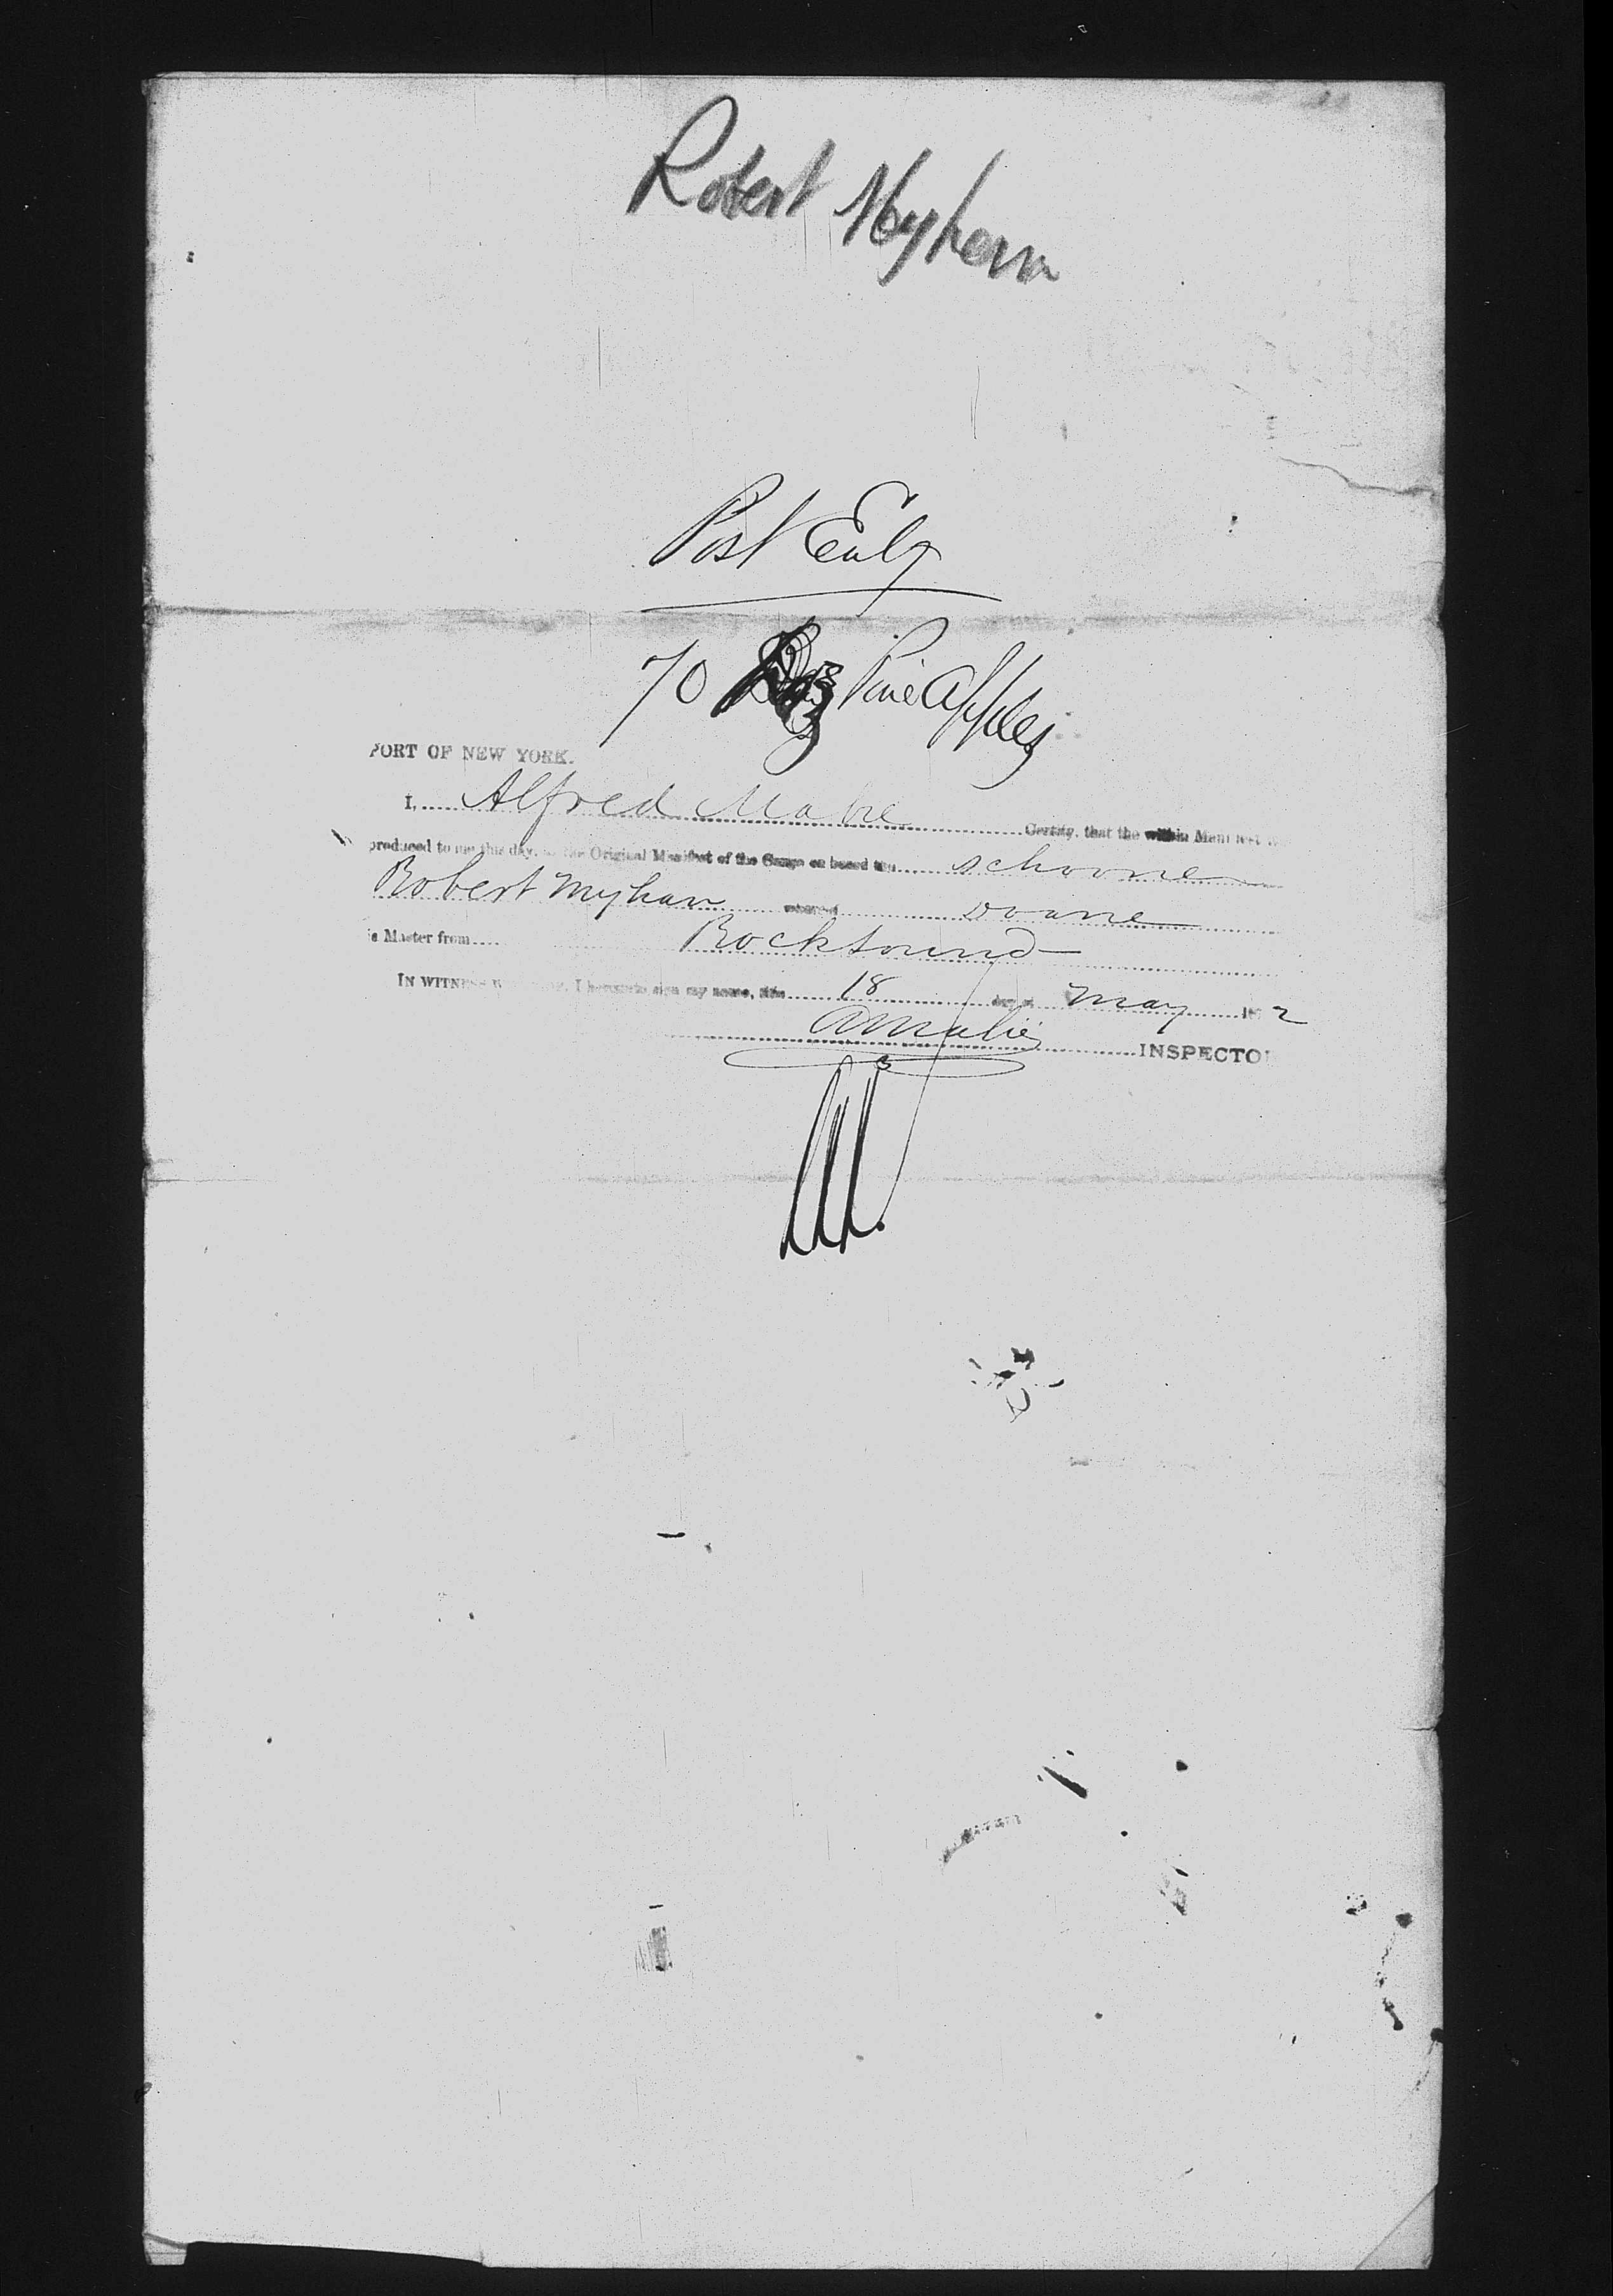 Robert Myhern
Post Enty
70 Doz Pine Apples
PORT OF NEW YORK.
I, Alfred Mabie Certify, that the within Manifest is
produced to me this day, is the Original Manifest of the Cargo on board the schooner
Robert Myhan whereof Doane
is Master from Rocksound
IN WITNESS WHEREOF, I hereunto sign my name, this 18 day of May 2
AMabie INSPECTOR